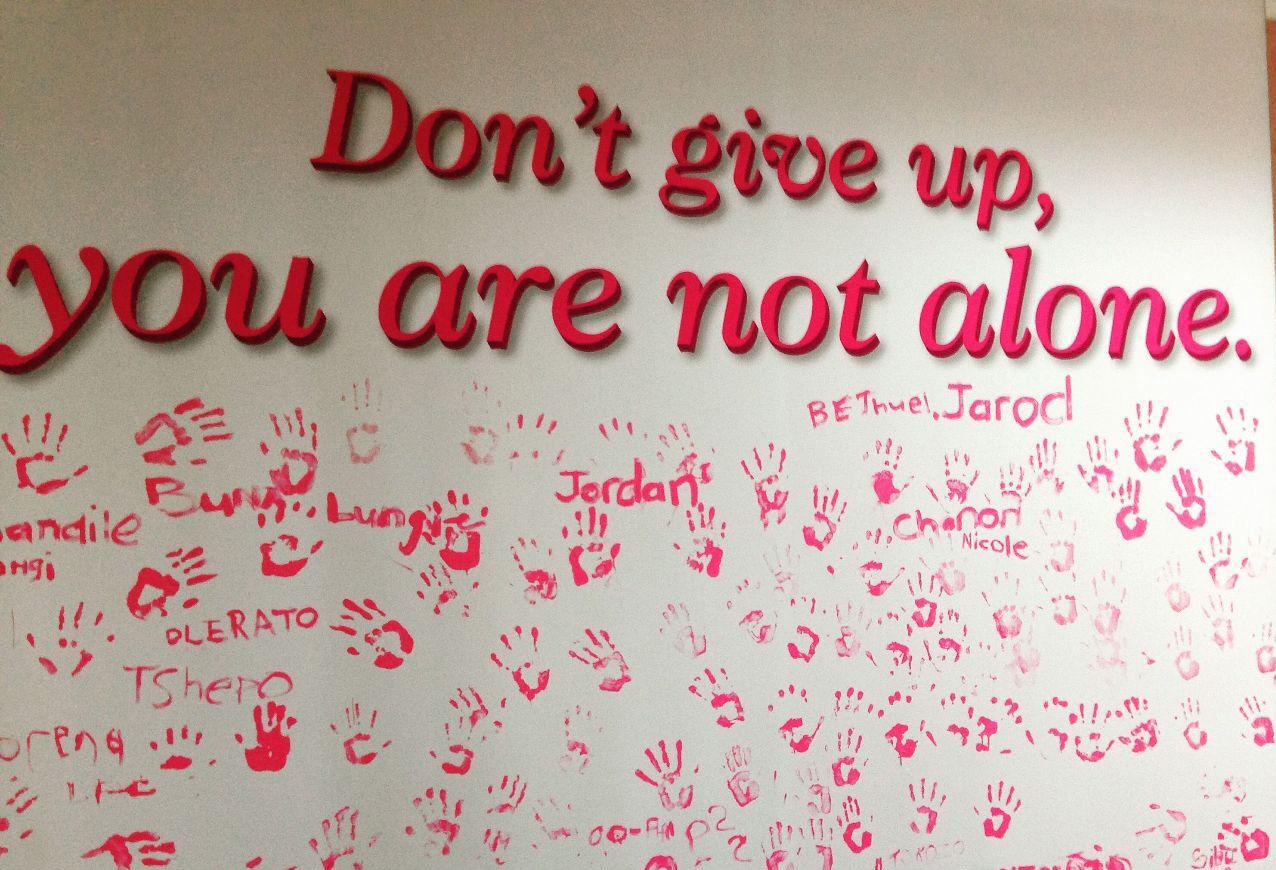 Don't give up,
you are not alone.
BEThuel. Jarod
Jordan
Bungi
Lungi
Chanon
Nicole
andile
ngi
OLERATO
TShepo
orena
Sibu